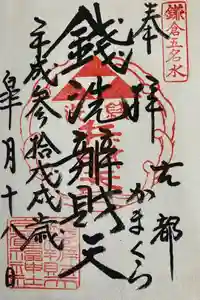 鎌倉五名水
奉拝
古都
かまくら
銭洗辨財天
平成参拾戊戌歳
皐月十八日